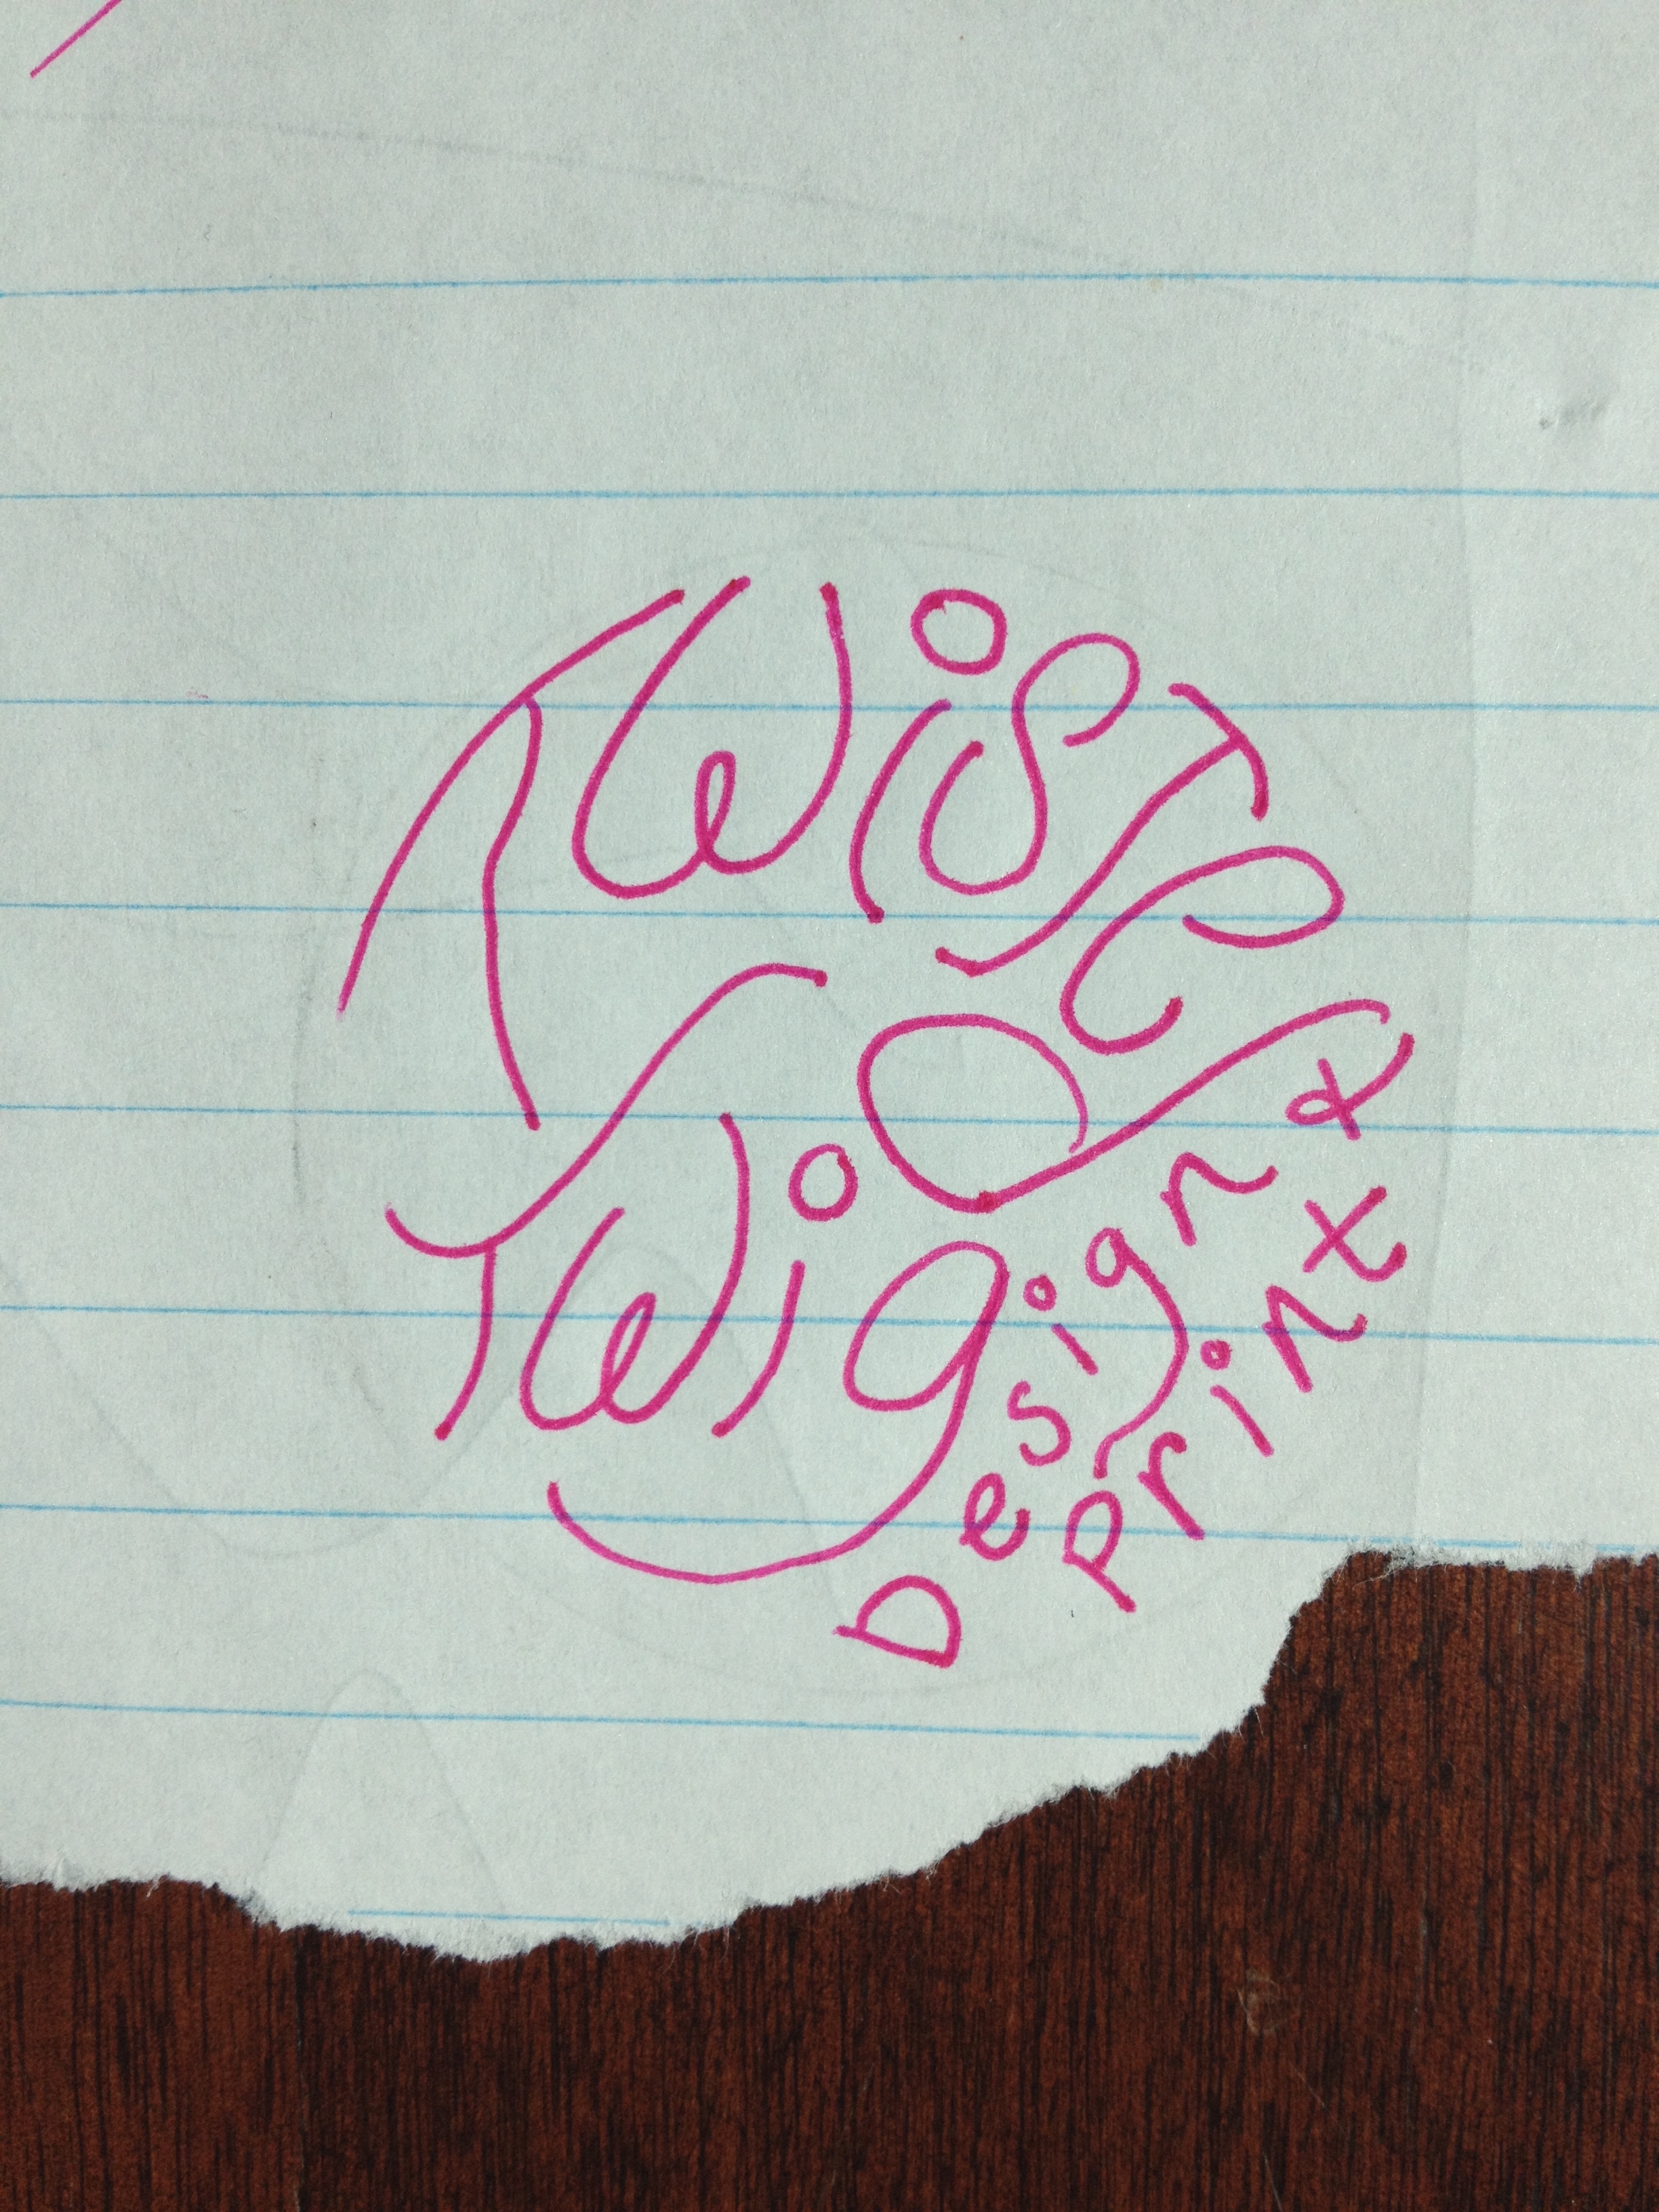 Twisted
Twig
Design &
Print